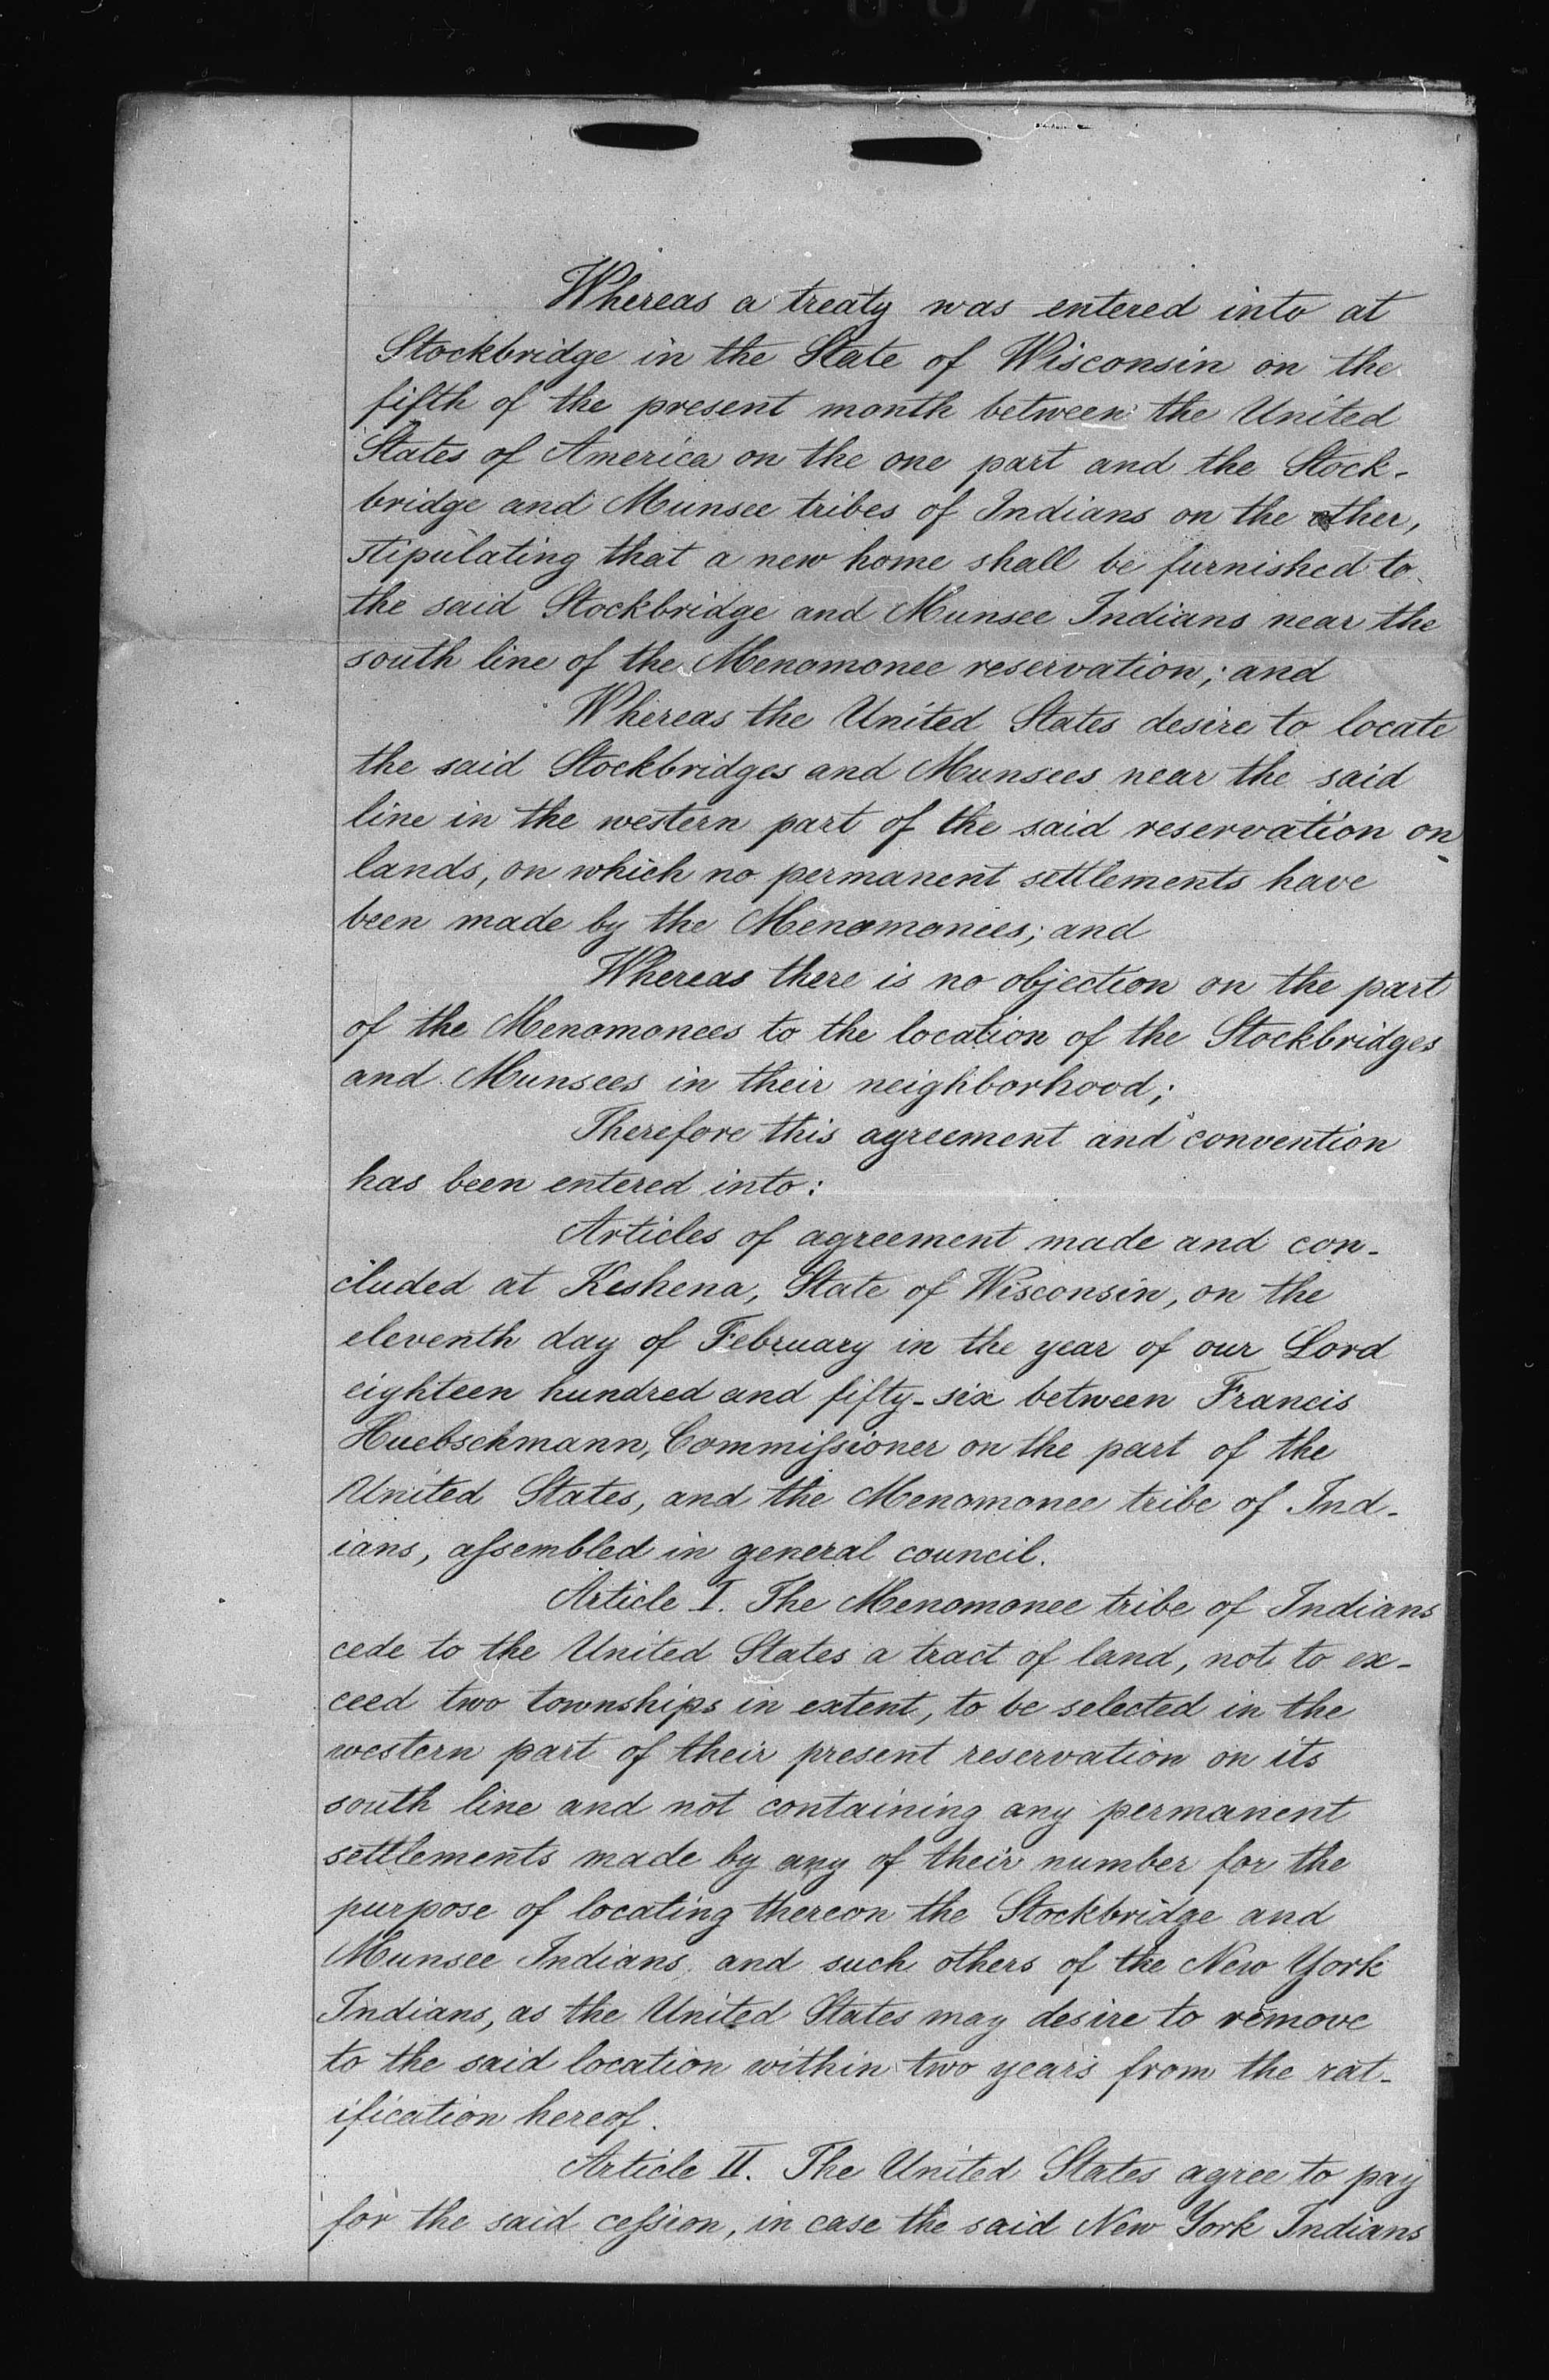 Whereas a treaty was entered into at
Stockbridge in the State of Wisconsin on the
fifth of the present month between the United
States of America on the one part and the Stock-
bridge and Munsee tribes of Indians on the other,
stipulating that a new home shall be furnished to
the said Stockbridge and Munsee Indians near the
south line of the Menomonee reservation; and
Whereas the United States desire to locate
the said Stockbridges and Munsees near the said
line in the western part of the said reservation on
lands, on which no permanent settlements have
been made by the Menomonees; and
Whereas there is no objection on the part
of the Menomonees to the location of the Stockbridges
and Munsees in their neighborhood;
Therefore this agreement and convention
has been entered into:
Articles of agreement made and con-
cluded at Keshena, State of Wisconsin, on the
eleventh day of February in the year of our Lord
eighteen hundred and fifty-six between Francis
Huebschmann, Commissioner on the part of the
United States, and the Menomonee tribe of Ind-
ians, assembled in general council.
Article I. The Menomonee tribe of Indians
cede to the United States a tract of land, not to ex-
ceed two townships in extent, to be selected in the
western part of their present reservation on its
south line and not containing any permanent
settlements made by any of their number for the
purpose of locating thereon the Stockbridge and
Munsee Indians and such others of the New York
Indians, as the United States may desire to remove
to the said location within two years from the rat-
ification hereof.
Article II. The United States agree to pay
for the said cession, in case the said New York Indians